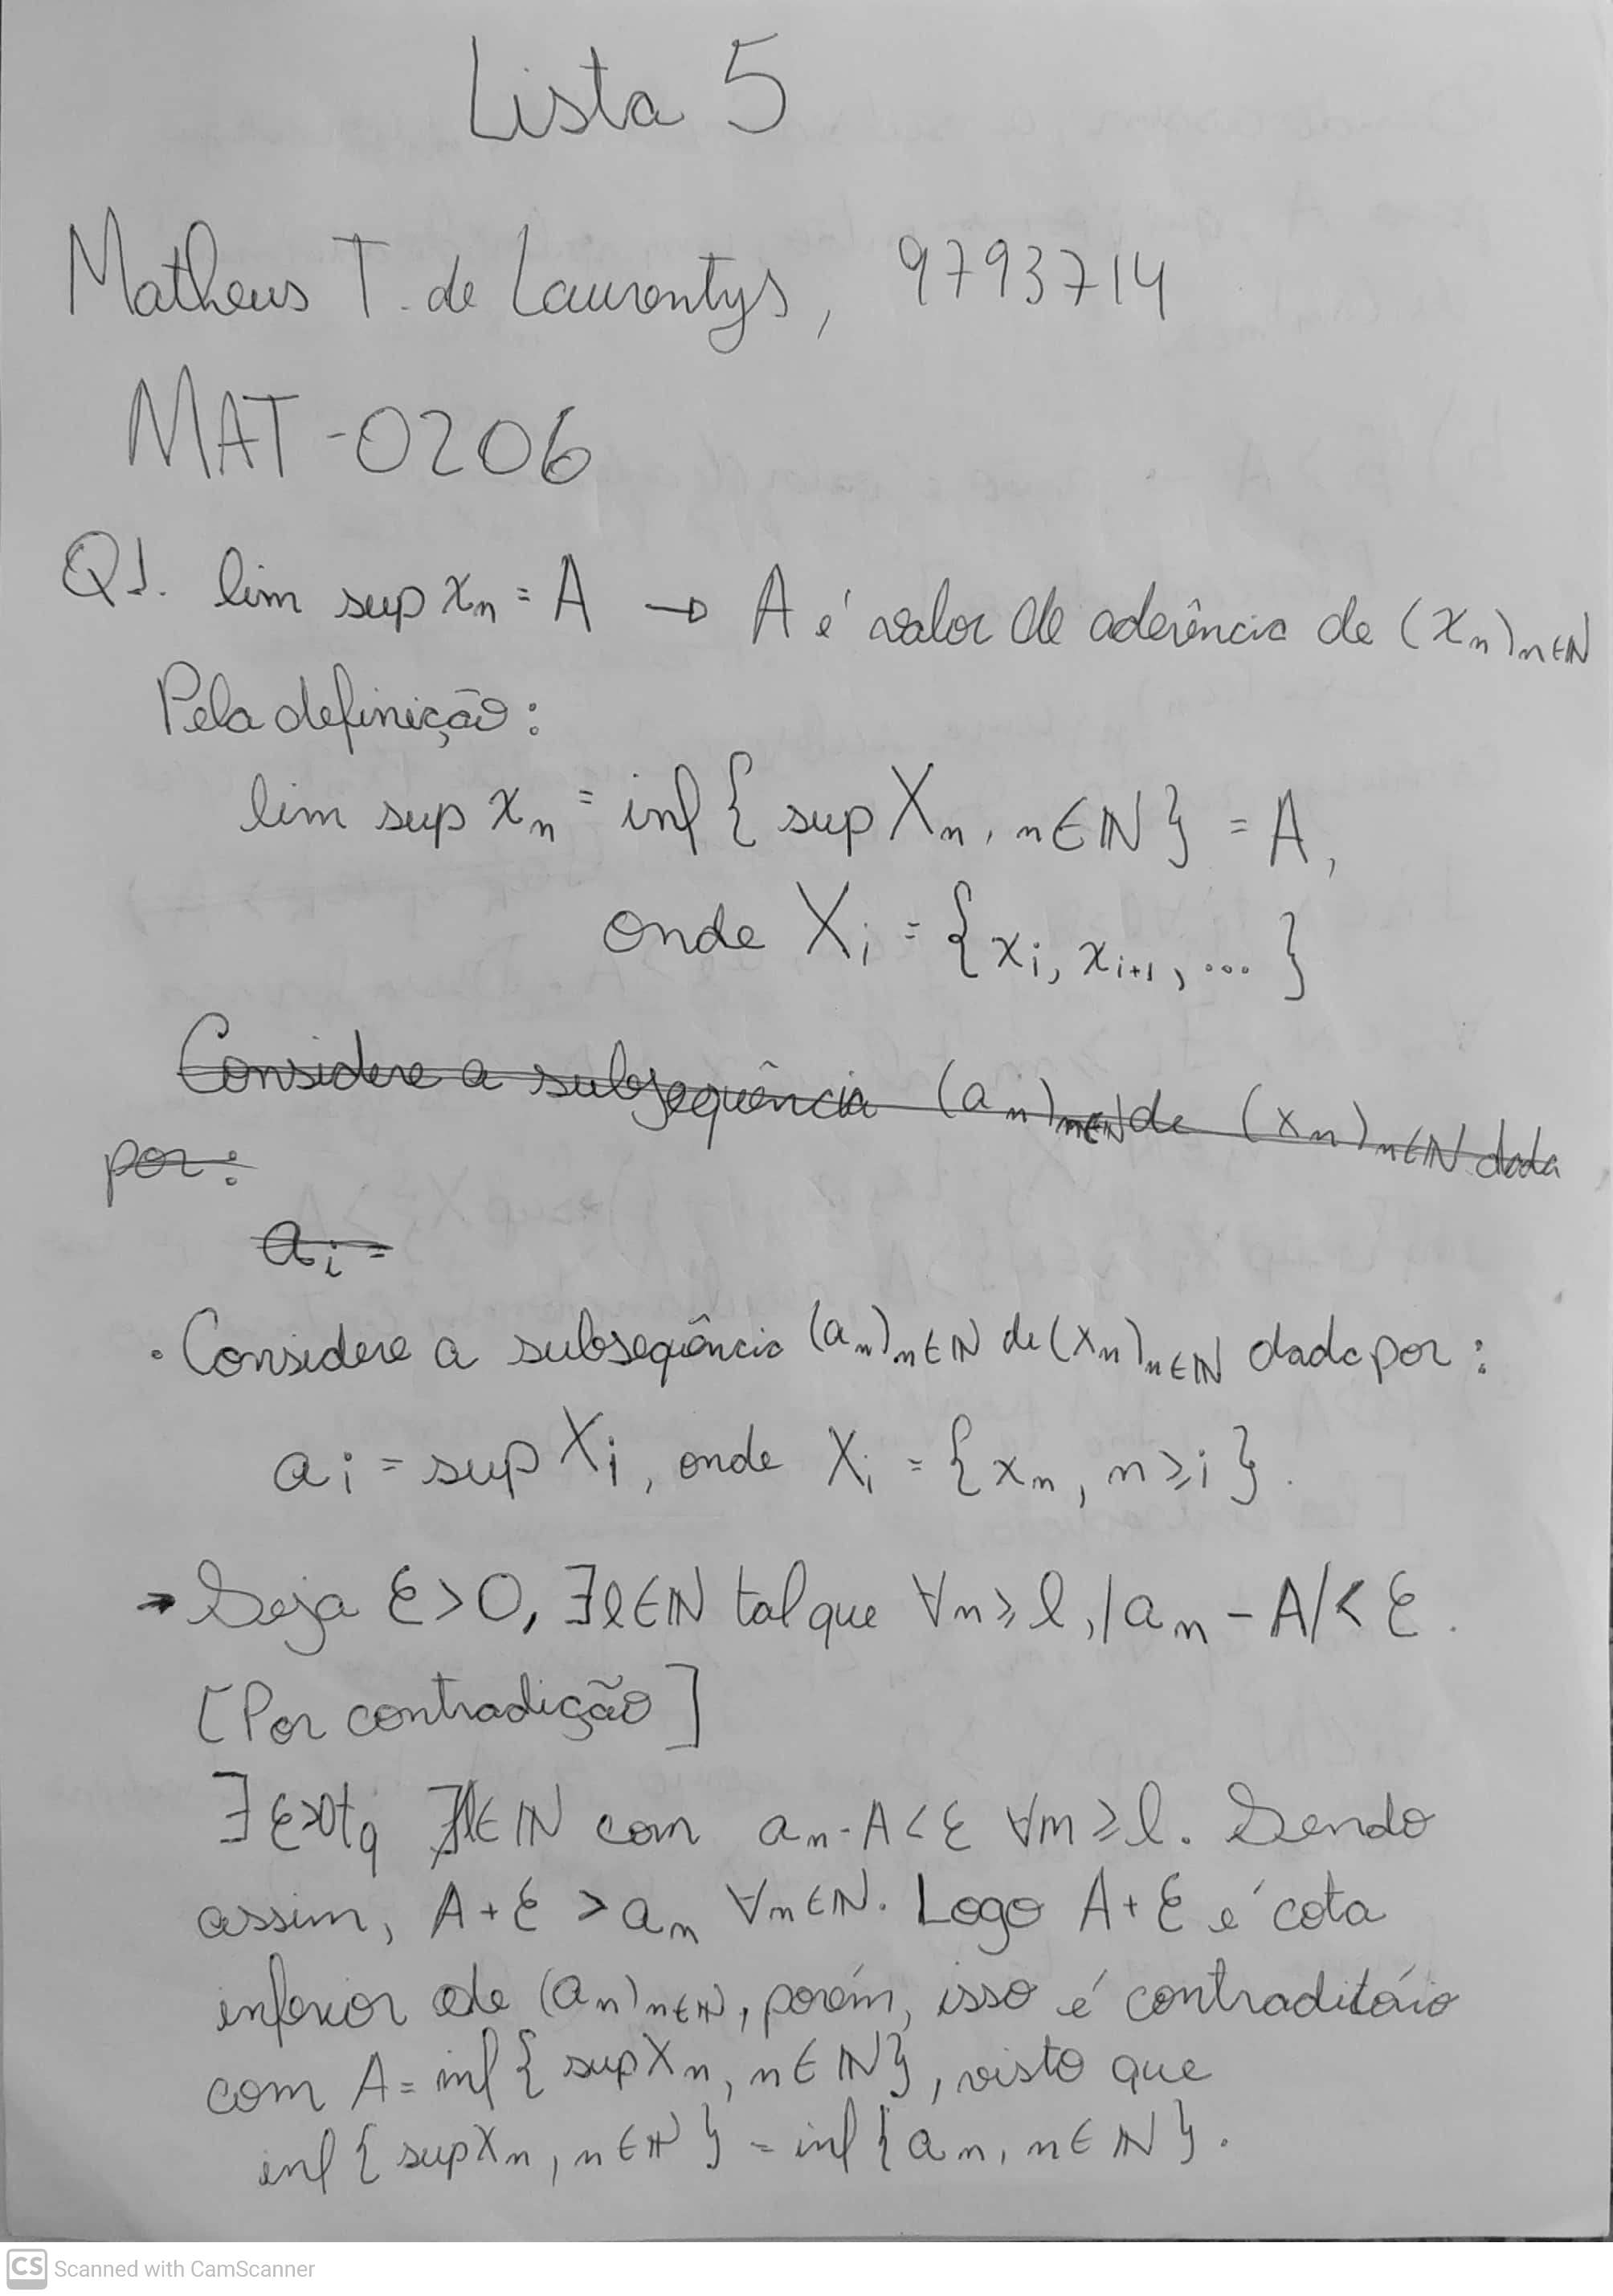 Lista 5
Matheus T. de Laurentys, 9793714
MAT-0206
Q1. lim sup xₙ = A → A é valor de aderência de (xₙ)ₙ∈ℕ
Pela definição:
lim sup xₙ = inf { sup Xₙ, n ∈ ℕ } = A,
onde Xᵢ = { xᵢ, xᵢ₊₁, ... }
Considere a subsequência (aₙ)ₙ∈ℕ de (xₙ)ₙ∈ℕ dada
por:
aᵢ =
• Considere a subseqência (aₙ)ₙ∈ℕ de (xₙ)ₙ∈ℕ dada por:
aᵢ = sup Xᵢ, onde Xᵢ = { xₙ, n ≥ i }.
→ Seja ε > 0, ∃ l ∈ ℕ tal que ∀n ≥ l, |aₙ - A| < ε.
[Por contradição]
∃ ε>0 tq ∄ l ∈ ℕ com aₙ - A < ε ∀n ≥ l. Sendo
assim, A + ε > aₙ ∀n ∈ ℕ. Logo A + ε é cota
inferior de (aₙ)ₙ∈ℕ, porém, isso é contraditóio
com A = inf { sup Xₙ, n ∈ ℕ }, visto que
inf { sup Xₙ, n ∈ ℕ } = inf { aₙ, n ∈ ℕ }.
CS Scanned with CamScanner